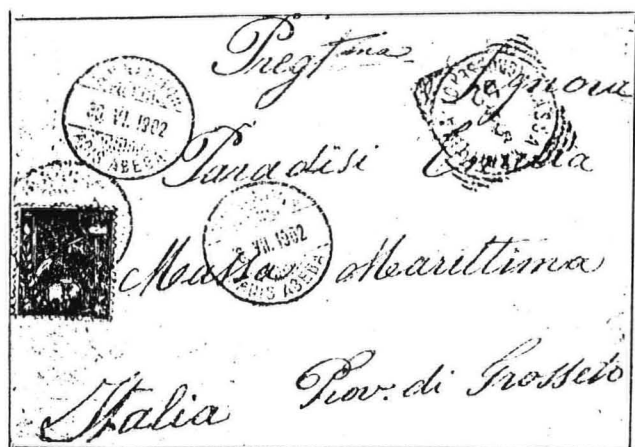 Pregt.ma
Signora
Paradisi
Massa Marittima
Prov. di Grosseto
Italia
30 VII. 1902
ADIS ABEBA
VII. 1902
ADIS ABEBA
MASSA